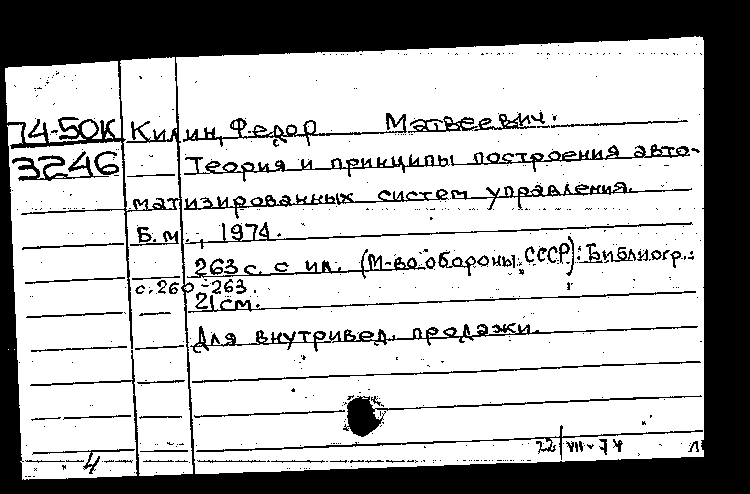 74-50К Килин, Федор Матвеевич.
3246 Теория и принципы построения авто-
матизированных систем управления.
Б.м., 1974.
263 с. с ил. (М-во обороны СССР). Библиогр.:
с. 260-263.
21 см.
Для внутривед. продажи.
22/VII-74
4